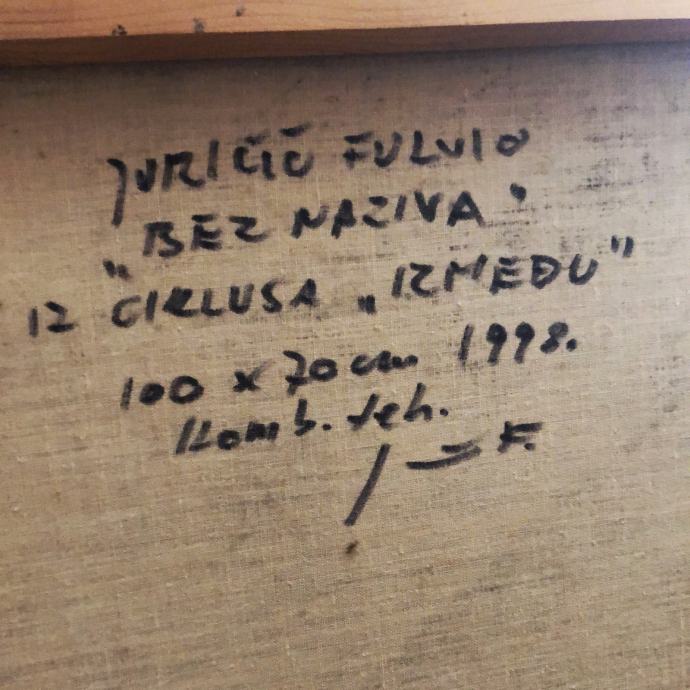 JURIČIĆ FULVIO
"BEZ NAZIVA"
IZ CIKLUSA „IZMEĐU"
100 x 70 cm 1998.
Komb. teh.
J F.